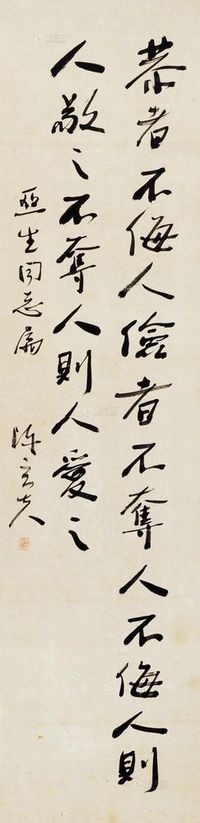 恭者不侮人儉者不奪人不侮人則
人敬之不奪人則人愛之
同志屬
陳立夫